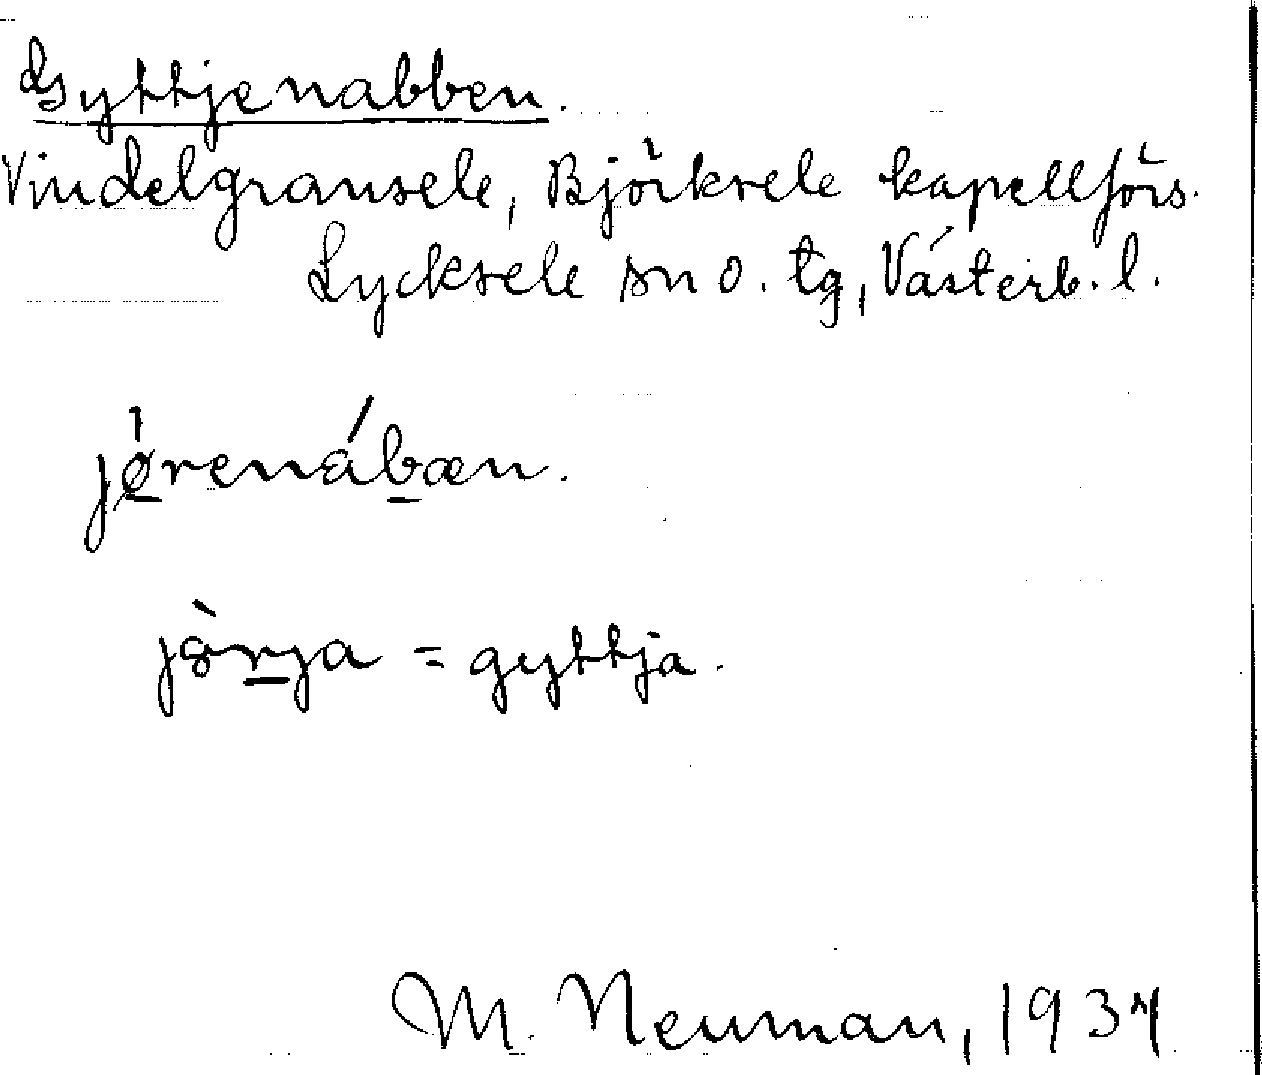 Gyttjenabben.
Vindelgransele, Björksele kapellförs.
Lycksele sn o. tg, Västerb. l.
jø̱̀renába̱en.
jö̀ṟja = gyttja.
M. Neuman, 1937